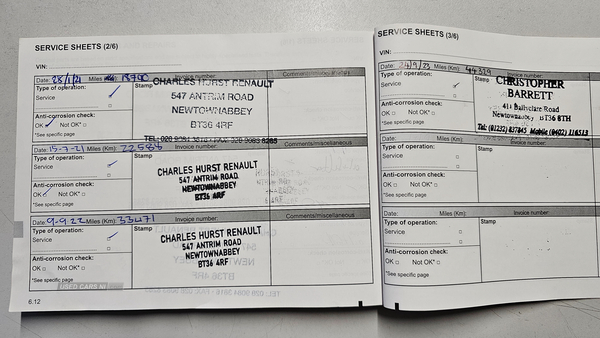 SERVICE SHEETS (2/6)
VIN:
Date: 28/1/21 Miles (Km): 13790 Invoice number:
Type of operation: Stamp Comments/miscellaneous
Service
CHARLES HURST RENAULT
547 ANTRIM ROAD
NEWTOWNABBEY
BT36 4RF
Anti-corrosion check:
OK Not OK*
*See specific page
Date: 15-7-21 Miles (Km): 22588 Invoice number:
Type of operation: Stamp
Service
CHARLES HURST RENAULT
547 ANTRIM ROAD
NEWTOWNABBEY
BT36 4RF
Anti-corrosion check:
OK Not OK*
*See specific page
Date: 9-9-22 Miles (Km): 33471 Invoice number:
Type of operation: Stamp Comments/miscellaneous
Service
CHARLES HURST RENAULT
547 ANTRIM ROAD
NEWTOWNABBEY
BT36 4RF
Anti-corrosion check:
OK Not OK*
*See specific page
USED CARS NI
6.12
SERVICE SHEETS (3/6)
VIN:
Date: 24/9/23 Miles (Km): 44329 Invoice number:
Type of operation: Stamp
Service
CHRISTOPHER
BARRETT
414 Ballyclare Road
Newtownabbey BT36 8TH
Anti-corrosion check:
OK Not OK*
*See specific page
Date: Miles (Km): Invoice number:
Type of operation: Stamp
Service
Anti-corrosion check:
OK Not OK*
*See specific page
Date: Miles (Km): Invoice number:
Type of operation: Stamp
Service
Anti-corrosion check:
OK Not OK*
*See specific page